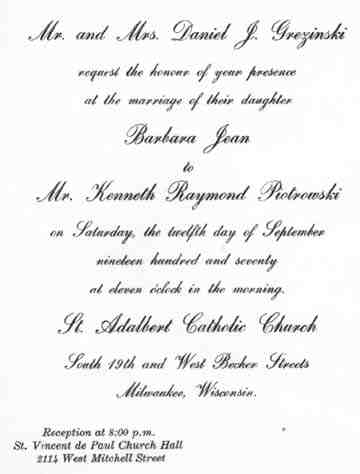 Mr. and Mrs. Daniel J. Grezinski
request the honour of your presence
at the marriage of their daughter
Barbara Jean
to
Mr. Kenneth Raymond Piotrowski
on Saturday, the twelfth day of September
nineteen hundred and seventy
at eleven o'clock in the morning.
St. Adalbert Catholic Church
South 19th and West Becher Streets
Milwaukee, Wisconsin.
Reception at 8:00 p.m.
St. Vincent de Paul Church Hall
2114 West Mitchell Street